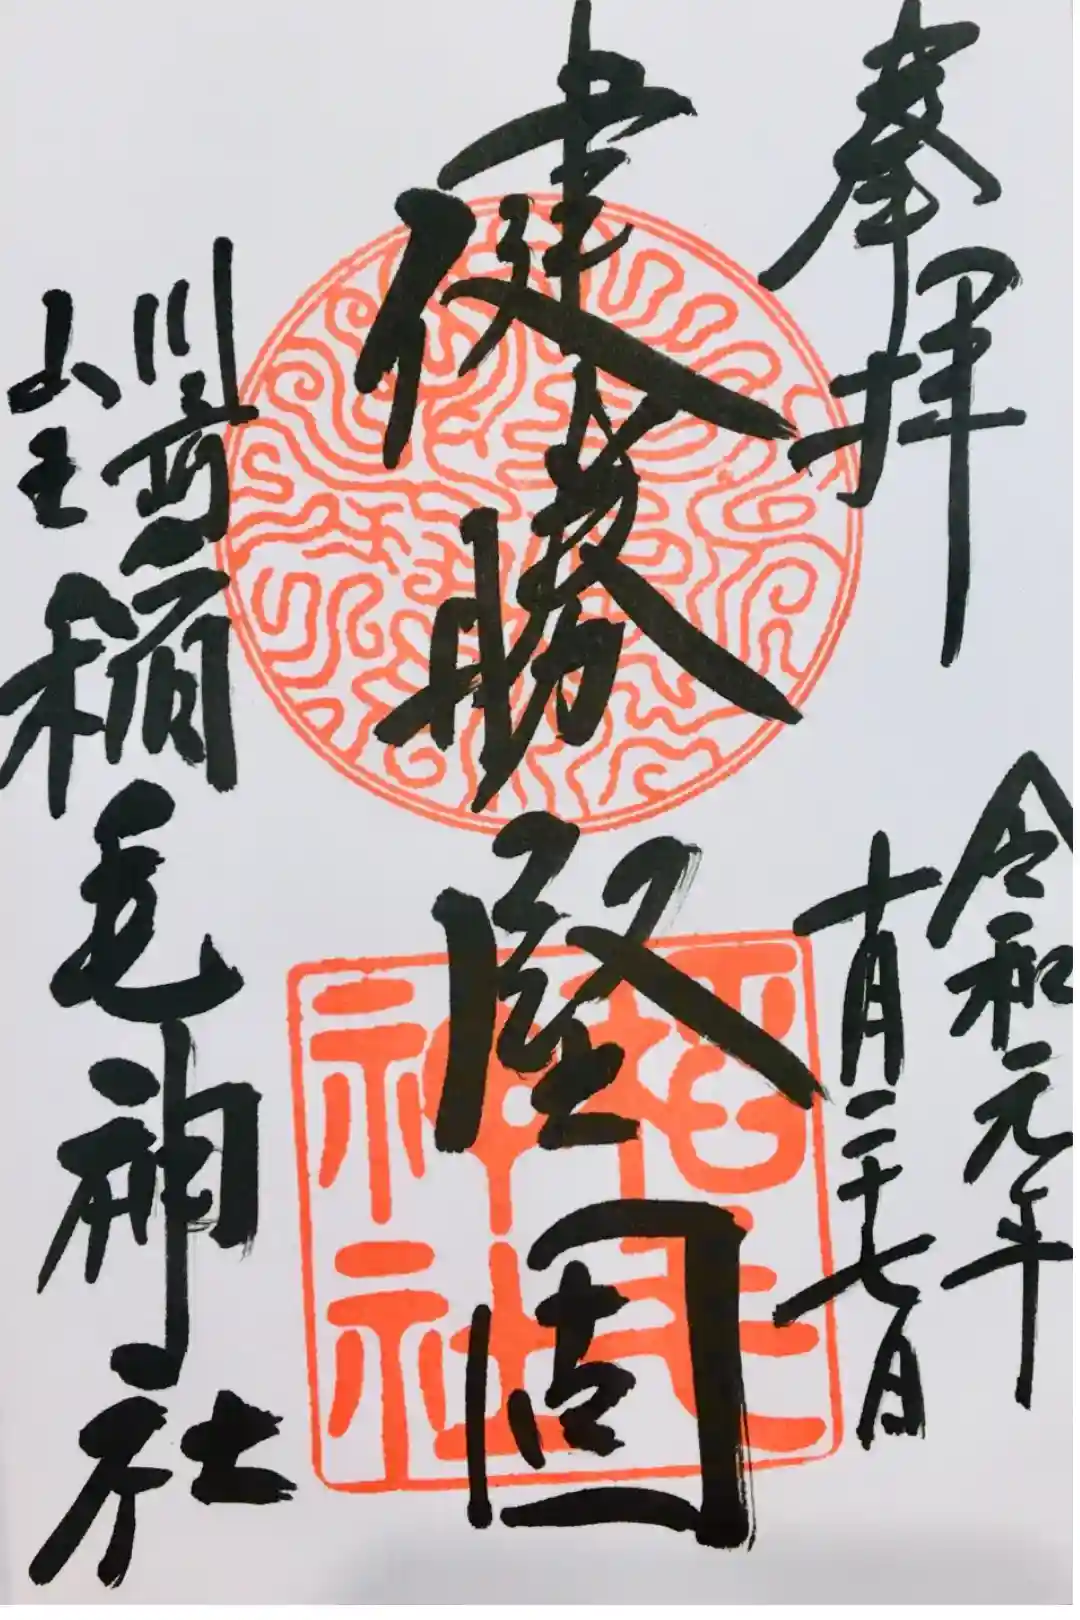 奉拝
令和元年
十月二十七日
健勝堅固
川崎
山王
稲毛神社
稲毛神社